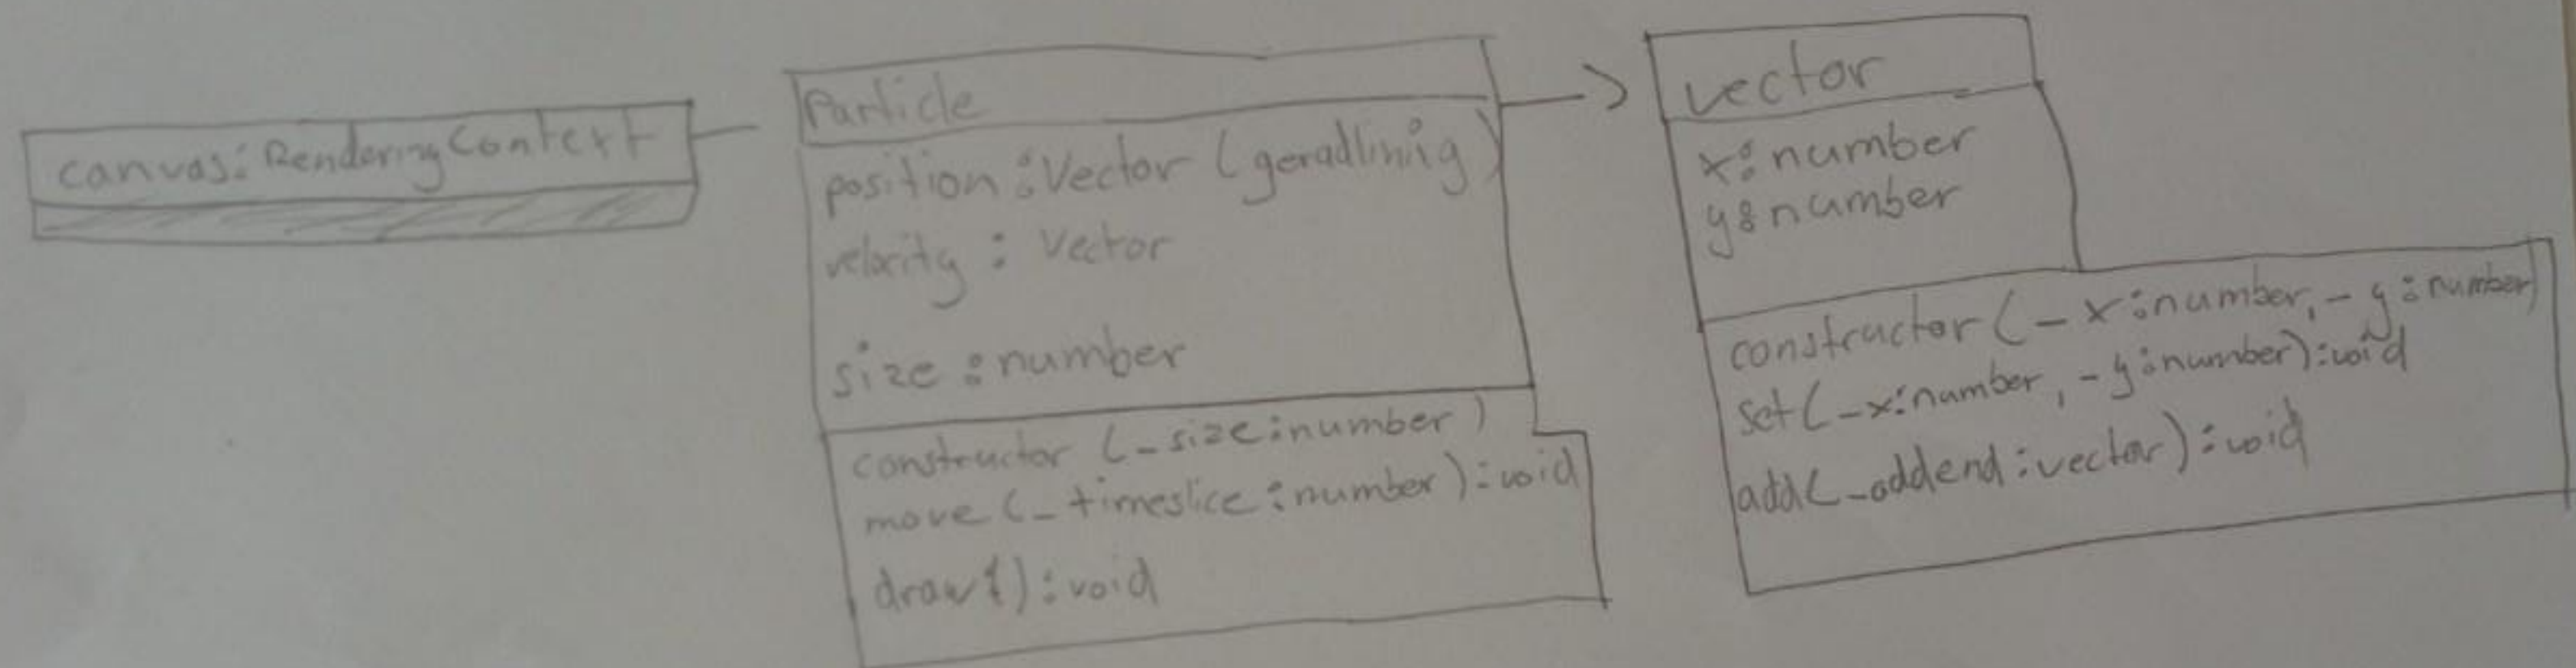 canvas: RenderingContext
Particle
position : Vector (geradlinig)
velocity : Vector
size : number
constructor (_size : number)
move (_timeslice : number) : void
draw() : void
vector
x : number
y : number
constructor (_x : number, _y : number)
set (_x : number, _y : number) : void
add (_addend : vector) : void